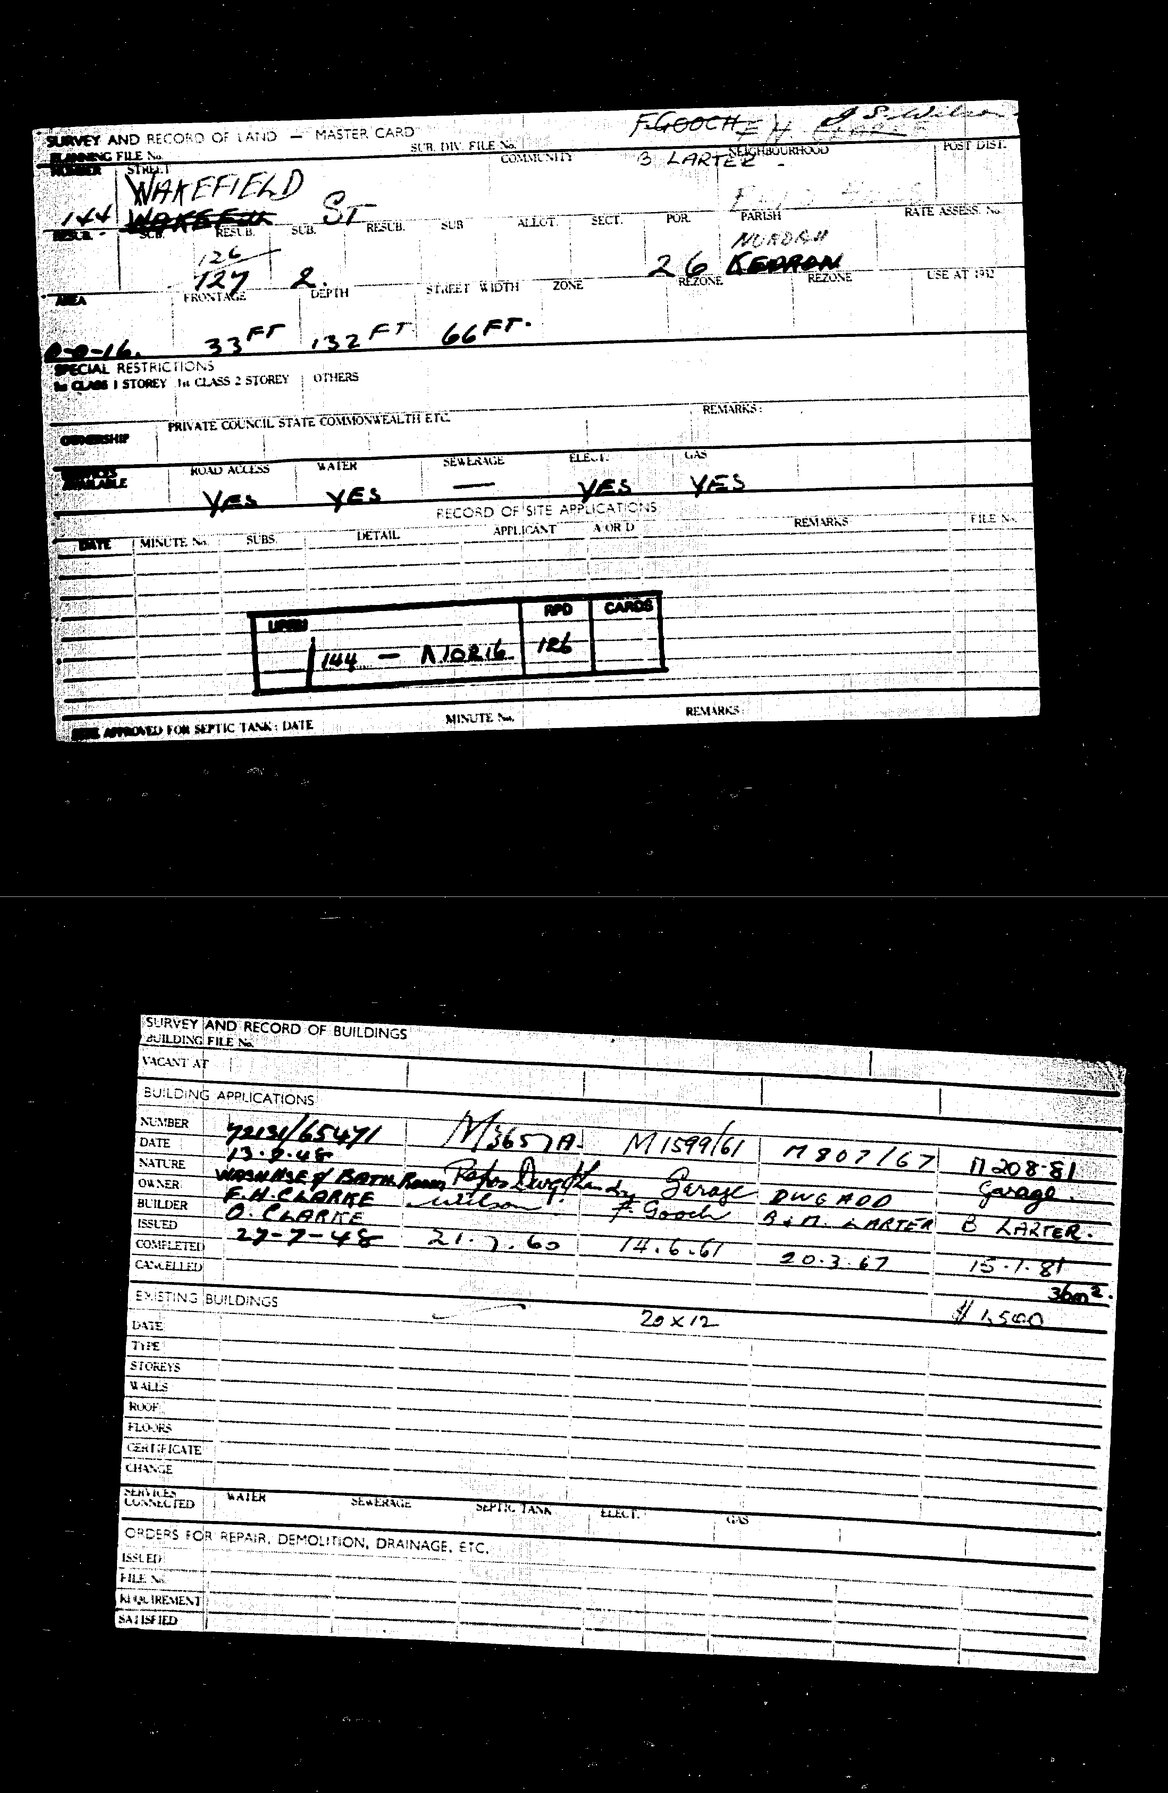 SURVEY AND RECORD OF LAND — MASTER CARD F. GOOCH F. H. CLARKE J S. Wilson
PLANNING FILE No. SUB. DIV. FILE No. COMMUNITY B LARTER NEIGHBOURHOOD POST DIST.
NUMBER STREET
WAKEFIELD
144 ST
RESUB. SUB. RESUB. SUB. RESUB. SUB ALLOT. SECT. POR. PARISH RATE ASSESS. No.
126 NUNDAH
127 2. 26 KEDRON
AREA FRONTAGE DEPTH STREET WIDTH ZONE REZONE REZONE USE AT 1952
0-0-16. 33 FT 132 FT 66 FT.
SPECIAL RESTRICTIONS
1st CLASS 1 STOREY 1st CLASS 2 STOREY OTHERS
OWNERSHIP PRIVATE COUNCIL STATE COMMONWEALTH ETC. REMARKS:
SERVICES AVAILABLE ROAD ACCESS WATER SEWERAGE ELECT. GAS
YES YES — YES YES
RECORD OF SITE APPLICATIONS
DATE MINUTE No. SUBS. DETAIL APPLICANT A OR D REMARKS FILE No.
UPRN RPD CARDS
144 — N10216 126
SITE APPROVED FOR SEPTIC TANK: DATE MINUTE No. REMARKS:
SURVEY AND RECORD OF BUILDINGS
BUILDING FILE No.
VACANT AT
BUILDING APPLICATIONS
NUMBER 72131/65471 M3657A M1599/61 M807/67 M208-81
DATE 13.9.48
NATURE WASHHSE & BATH ROOM Garage DWG ADD Garage.
OWNER F. H. CLARKE Wilson F. Gooch B & M. LARTER B LARTER.
BUILDER O. CLARKE
ISSUED 27-7-48 21.7.60 14.6.61 20.3.67 15.1.81
COMPLETED
CANCELLED 36m².
EXISTING BUILDINGS 20 x 12 $1,500
DATE
TYPE
STOREYS
WALLS
ROOF
FLOORS
CERTIFICATE
CHANGE
SERVICES CONNECTED WATER SEWERAGE SEPTIC TANK ELECT. GAS
ORDERS FOR REPAIR, DEMOLITION, DRAINAGE, ETC.
ISSUED
FILE No.
REQUIREMENT
SATISFIED